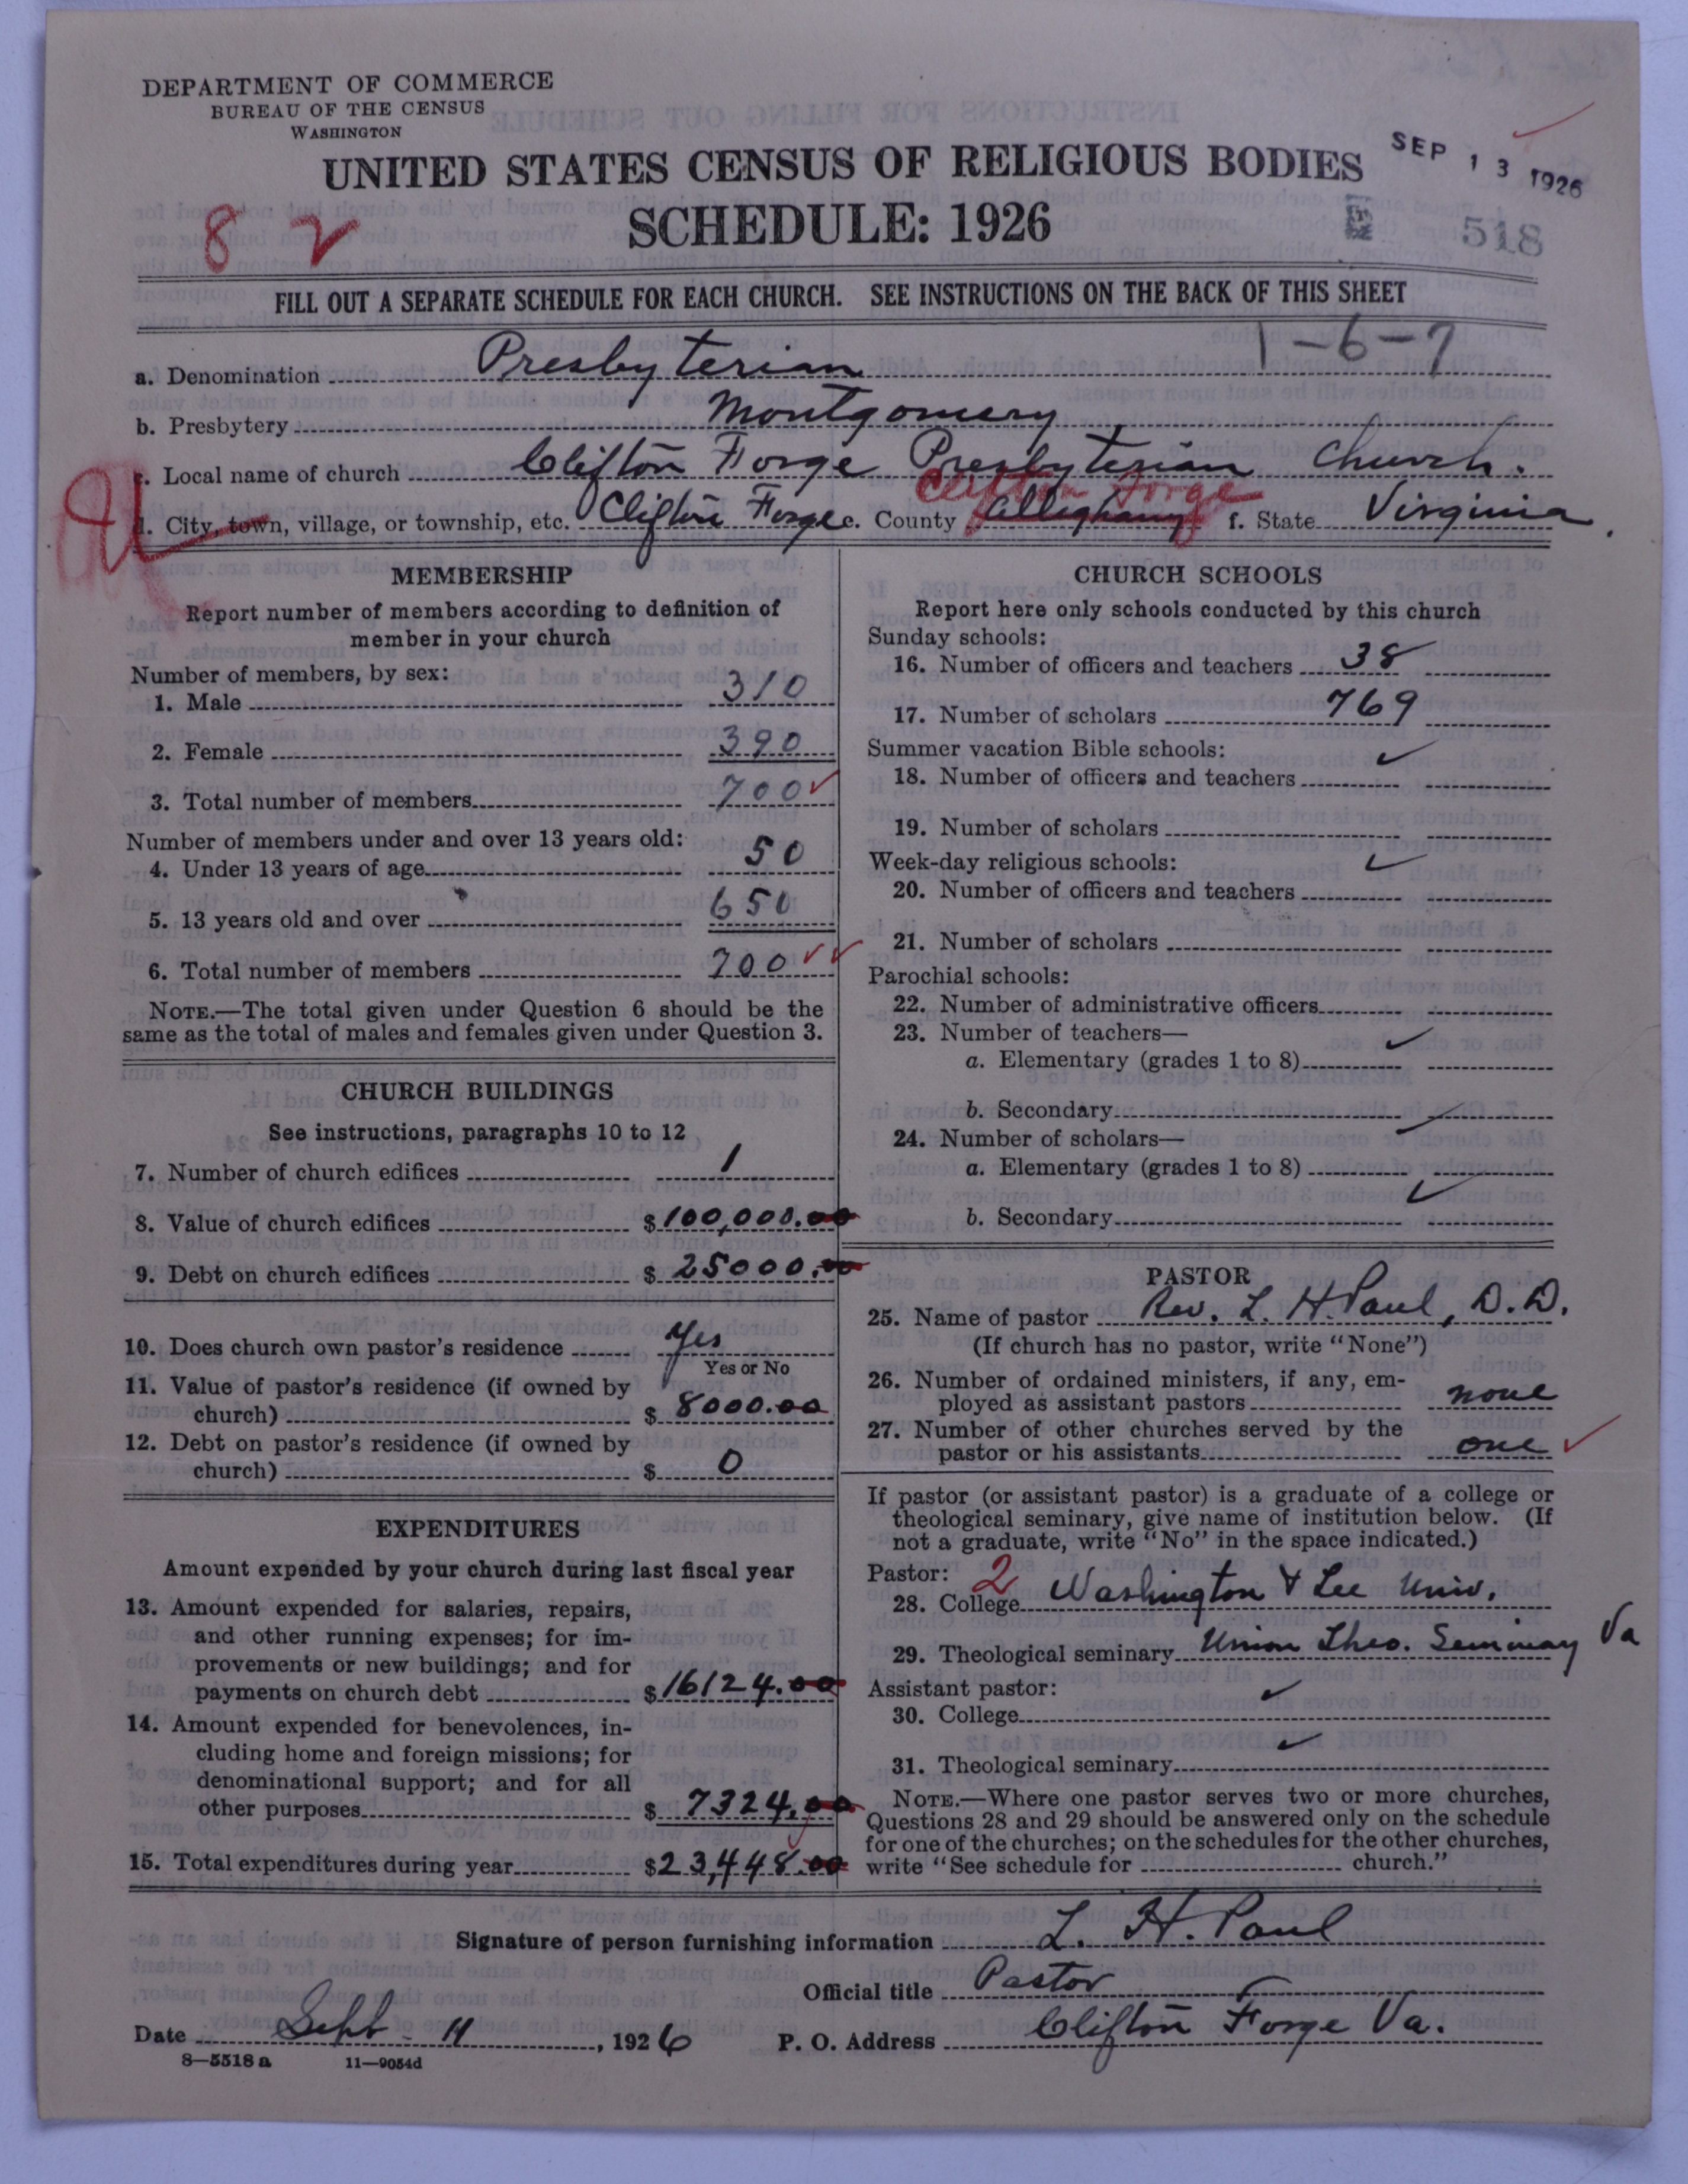 DEPARTMENT OF COMMERCE
BUREAU OF THE CENSUS
WASHINGTON
UNITED STATES CENSUS OF RELIGIOUS BODIES
SEP 13 1926
SCHEDULE: 1926
8 2
518
FILL OUT A SEPARATE SCHEDULE FOR EACH CHURCH. SEE INSTRUCTIONS ON THE BACK OF THIS SHEET
1-6-7
a. Denomination Presbyterian
b. Presbytery Montgomery
c. Local name of church Clifton Forge Presbyterian Church.
Clifton Forge
d. City, town, village, or township, etc. Clifton Forge e. County Alleghany f. State Virginia.
MEMBERSHIP
Report number of members according to definition of
member in your church
Number of members, by sex:
1. Male 310
2. Female 390
3. Total number of members 700
Number of members under and over 13 years old:
4. Under 13 years of age 50
5. 13 years old and over 650
6. Total number of members 700
NOTE.—The total given under Question 6 should be the
same as the total of males and females given under Question 3.
CHURCH BUILDINGS
See instructions, paragraphs 10 to 12
7. Number of church edifices 1
8. Value of church edifices $100,000.00
9. Debt on church edifices $25000.00
10. Does church own pastor's residence Yes
Yes or No
11. Value of pastor's residence (if owned by
church) $8000.00
12. Debt on pastor's residence (if owned by
church) $0
EXPENDITURES
Amount expended by your church during last fiscal year
13. Amount expended for salaries, repairs,
and other running expenses; for im-
provements or new buildings; and for
payments on church debt $16124.00
14. Amount expended for benevolences, in-
cluding home and foreign missions; for
denominational support; and for all
other purposes $7324.00
15. Total expenditures during year $23,448.00
CHURCH SCHOOLS
Report here only schools conducted by this church
Sunday schools:
16. Number of officers and teachers 38
17. Number of scholars 769
Summer vacation Bible schools:
18. Number of officers and teachers
19. Number of scholars
Week-day religious schools:
20. Number of officers and teachers
21. Number of scholars
Parochial schools:
22. Number of administrative officers
23. Number of teachers—
a. Elementary (grades 1 to 8)
b. Secondary
24. Number of scholars—
a. Elementary (grades 1 to 8)
b. Secondary
PASTOR
25. Name of pastor Rev. L. H. Paul, D.D.
(If church has no pastor, write "None")
26. Number of ordained ministers, if any, em-
ployed as assistant pastors none
27. Number of other churches served by the
pastor or his assistants one
If pastor (or assistant pastor) is a graduate of a college or
theological seminary, give name of institution below. (If
not a graduate, write "No" in the space indicated.)
Pastor: 2
28. College Washington & Lee Univ.
29. Theological seminary Union Theo. Seminary Va
Assistant pastor:
30. College
31. Theological seminary
NOTE.—Where one pastor serves two or more churches,
Questions 28 and 29 should be answered only on the schedule
for one of the churches; on the schedules for the other churches,
write "See schedule for church."
Signature of person furnishing information L. H. Paul
Official title Pastor
Date Sept - 11, 1926 P. O. Address Clifton Forge Va.
8—5518 a 11—9054d